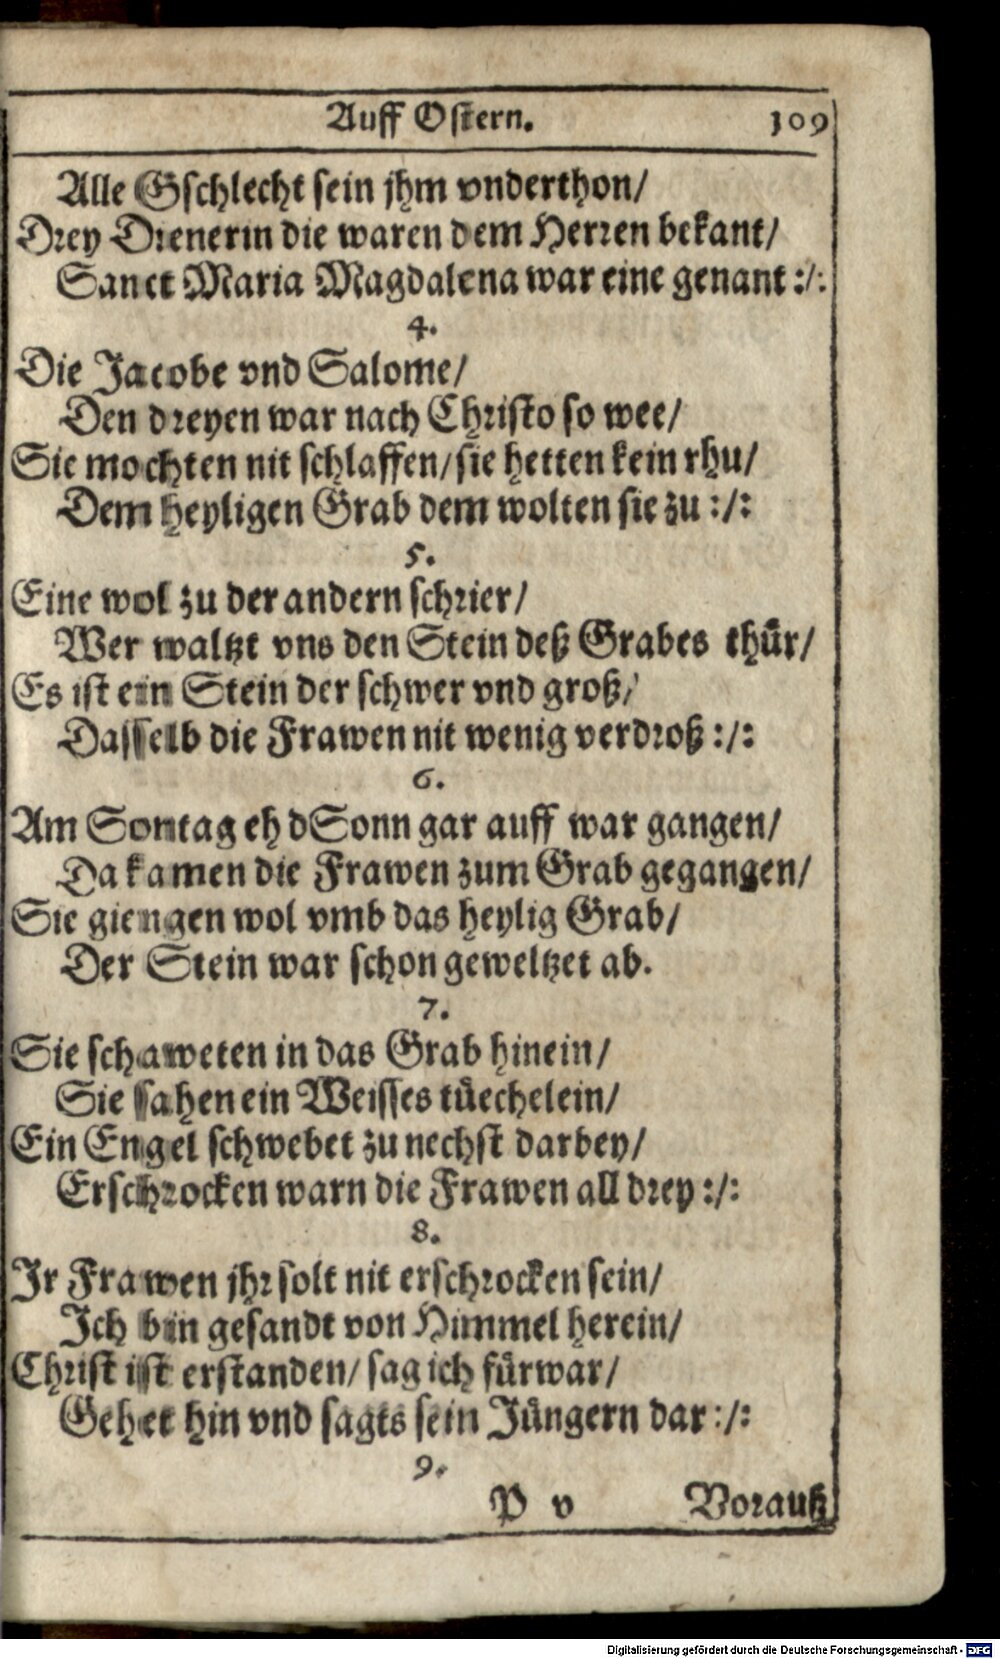 Auff Ostern. 109
Alle Gschlecht sein jhm vnderthon/
Drey Dienerin die waren dem Herren bekant/
Sanct Maria Magdalena war eine genant :/:
4.
Die Jacobe vnd Salome/
Den dreyen war nach Christo so wee/
Sie mochten nit schlaffen/ sie hetten kein rhu/
Dem heyligen Grab dem wolten sie zu :/:
5.
Eine wol zu der andern schrier/
Wer waltzt vns den Stein deß Grabes thůr/
Es ist ein Stein der schwer vnd groß/
Dasselb die Frawen nit wenig verdroß :/:
6.
Am Sontag eh dSonn gar auff war gangen/
Da kamen die Frawen zum Grab gegangen/
Sie giengen wol vmb das heylig Grab/
Der Stein war schon geweltzet ab.
7.
Sie schaweten in das Grab hinein/
Sie sahen ein Weisses tůechelein/
Ein Engel schwebet zu nechst darbey/
Erschrocken warn die Frawen all drey :/:
8.
Jr Frawen jhr solt nit erschrocken sein/
Ich bin gesandt von Himmel herein/
Christ ist erstanden/ sag ich fůrwar/
Gehet hin vnd sagts sein Jůngern dar :/:
9.
P v Vorauß
Digitalisierung gefördert durch die Deutsche Forschungsgemeinschaft - DFG